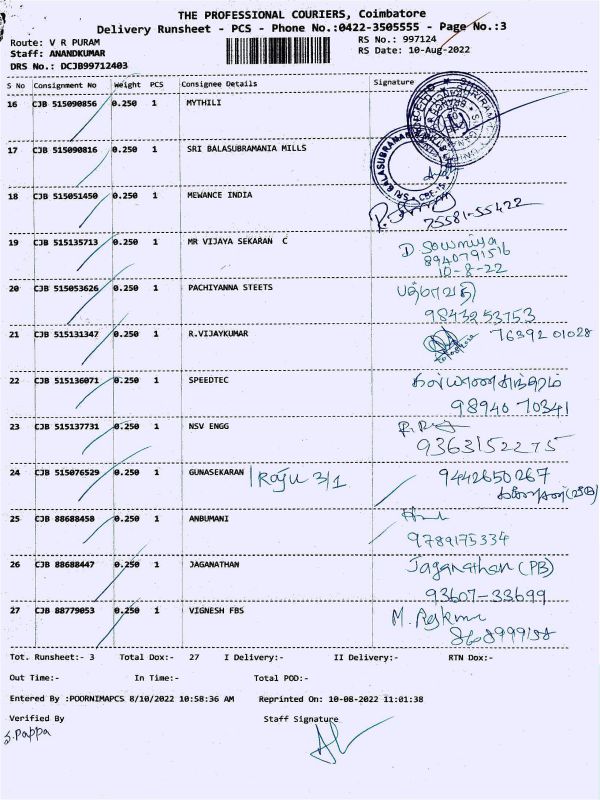 THE PROFESSIONAL COURIERS, Coimbatore
Delivery Runsheet - PCS - Phone No.:0422-3505555 - Page No.:3
Route: V R PURAM
RS No.: 997124
Staff: ANANDKUMAR
RS Date: 10-Aug-2022
DRS No.: DCJB99712403
S No Consignment No Weight PCS Consignee Details Signature
16 CJB 515090856 0.250 1 MYTHILI
17 CJB 515090816 0.250 1 SRI BALASUBRAMANIA MILLS
18 CJB 515051450 0.250 1 MEWANCE INDIA
75581-55422
19 CJB 515135713 0.250 1 MR VIJAYA SEKARAN C
D Sowmiya
8940791516
10-8-22
20 CJB 515053626 0.250 1 PACHIYANNA STEETS
98432 53753
21 CJB 515131347 1 R.VIJAYKUMAR
76392 01028
22 CJB 515136071 0.250 1 SPEEDTEC
98940 70341
23 CJB 515137731 0.250 1 NSV ENGG
9363152275
24 CJB 515076529 0.250 1 GUNASEKARAN Raju 3/1
9442650267
25 CJB 88688458 0.250 1 ANBUMANI
9789175334
26 CJB 88688447 0.250 1 JAGANATHAN
Jaganathan (PB)
93607-33699
27 CJB 88779053 0.250 1 VIGNESH FBS
Tot. Runsheet:- 3 Total Dox:- 27 I Delivery:- II Delivery:- RTN Dox:-
Out Time:- In Time:- Total POD:-
Entered By :POORNIMAPCS 8/10/2022 10:58:36 AM Reprinted On: 10-08-2022 11:01:38
Verified By Staff Signature
S.Pappa